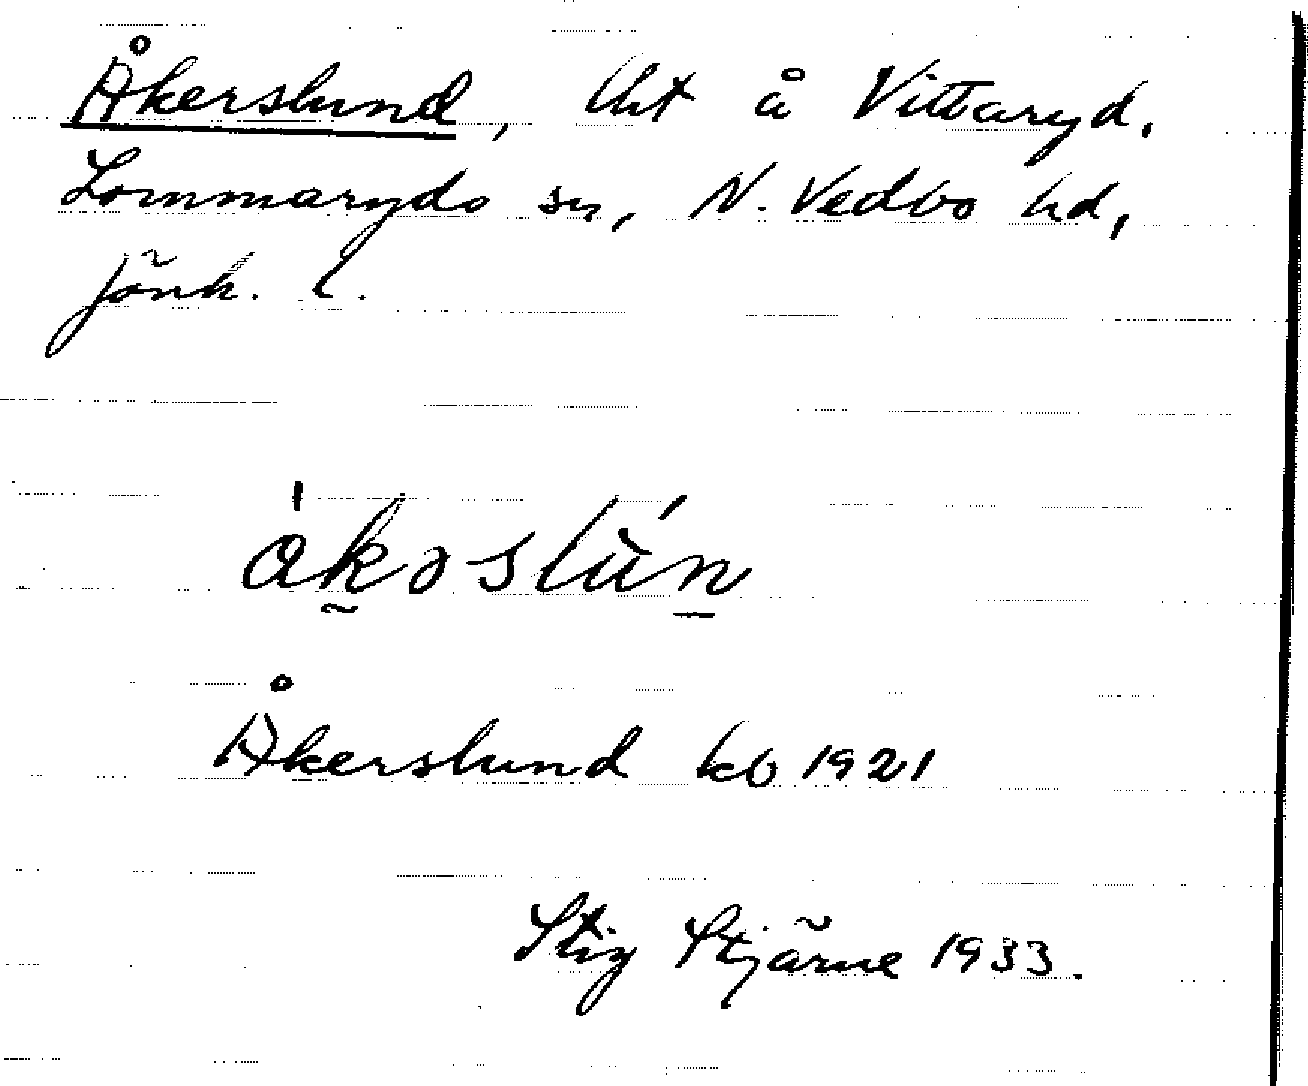 Åkerslund, lht å Vittaryd,
Lommaryds sn, N. Vedbo hd,
Jönk. l.
Åkerslund kb 1921
Stig Stjärne 1933.